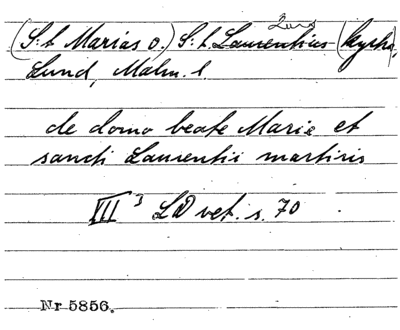 Lund
(S:t Marias o.) S:t Laurentius- (kyrka),
Lund, Malm. l.
de domo beate Marie et
sancti Laurentii martiris
XII 3 LD vet. s. 70
Nr 5856.